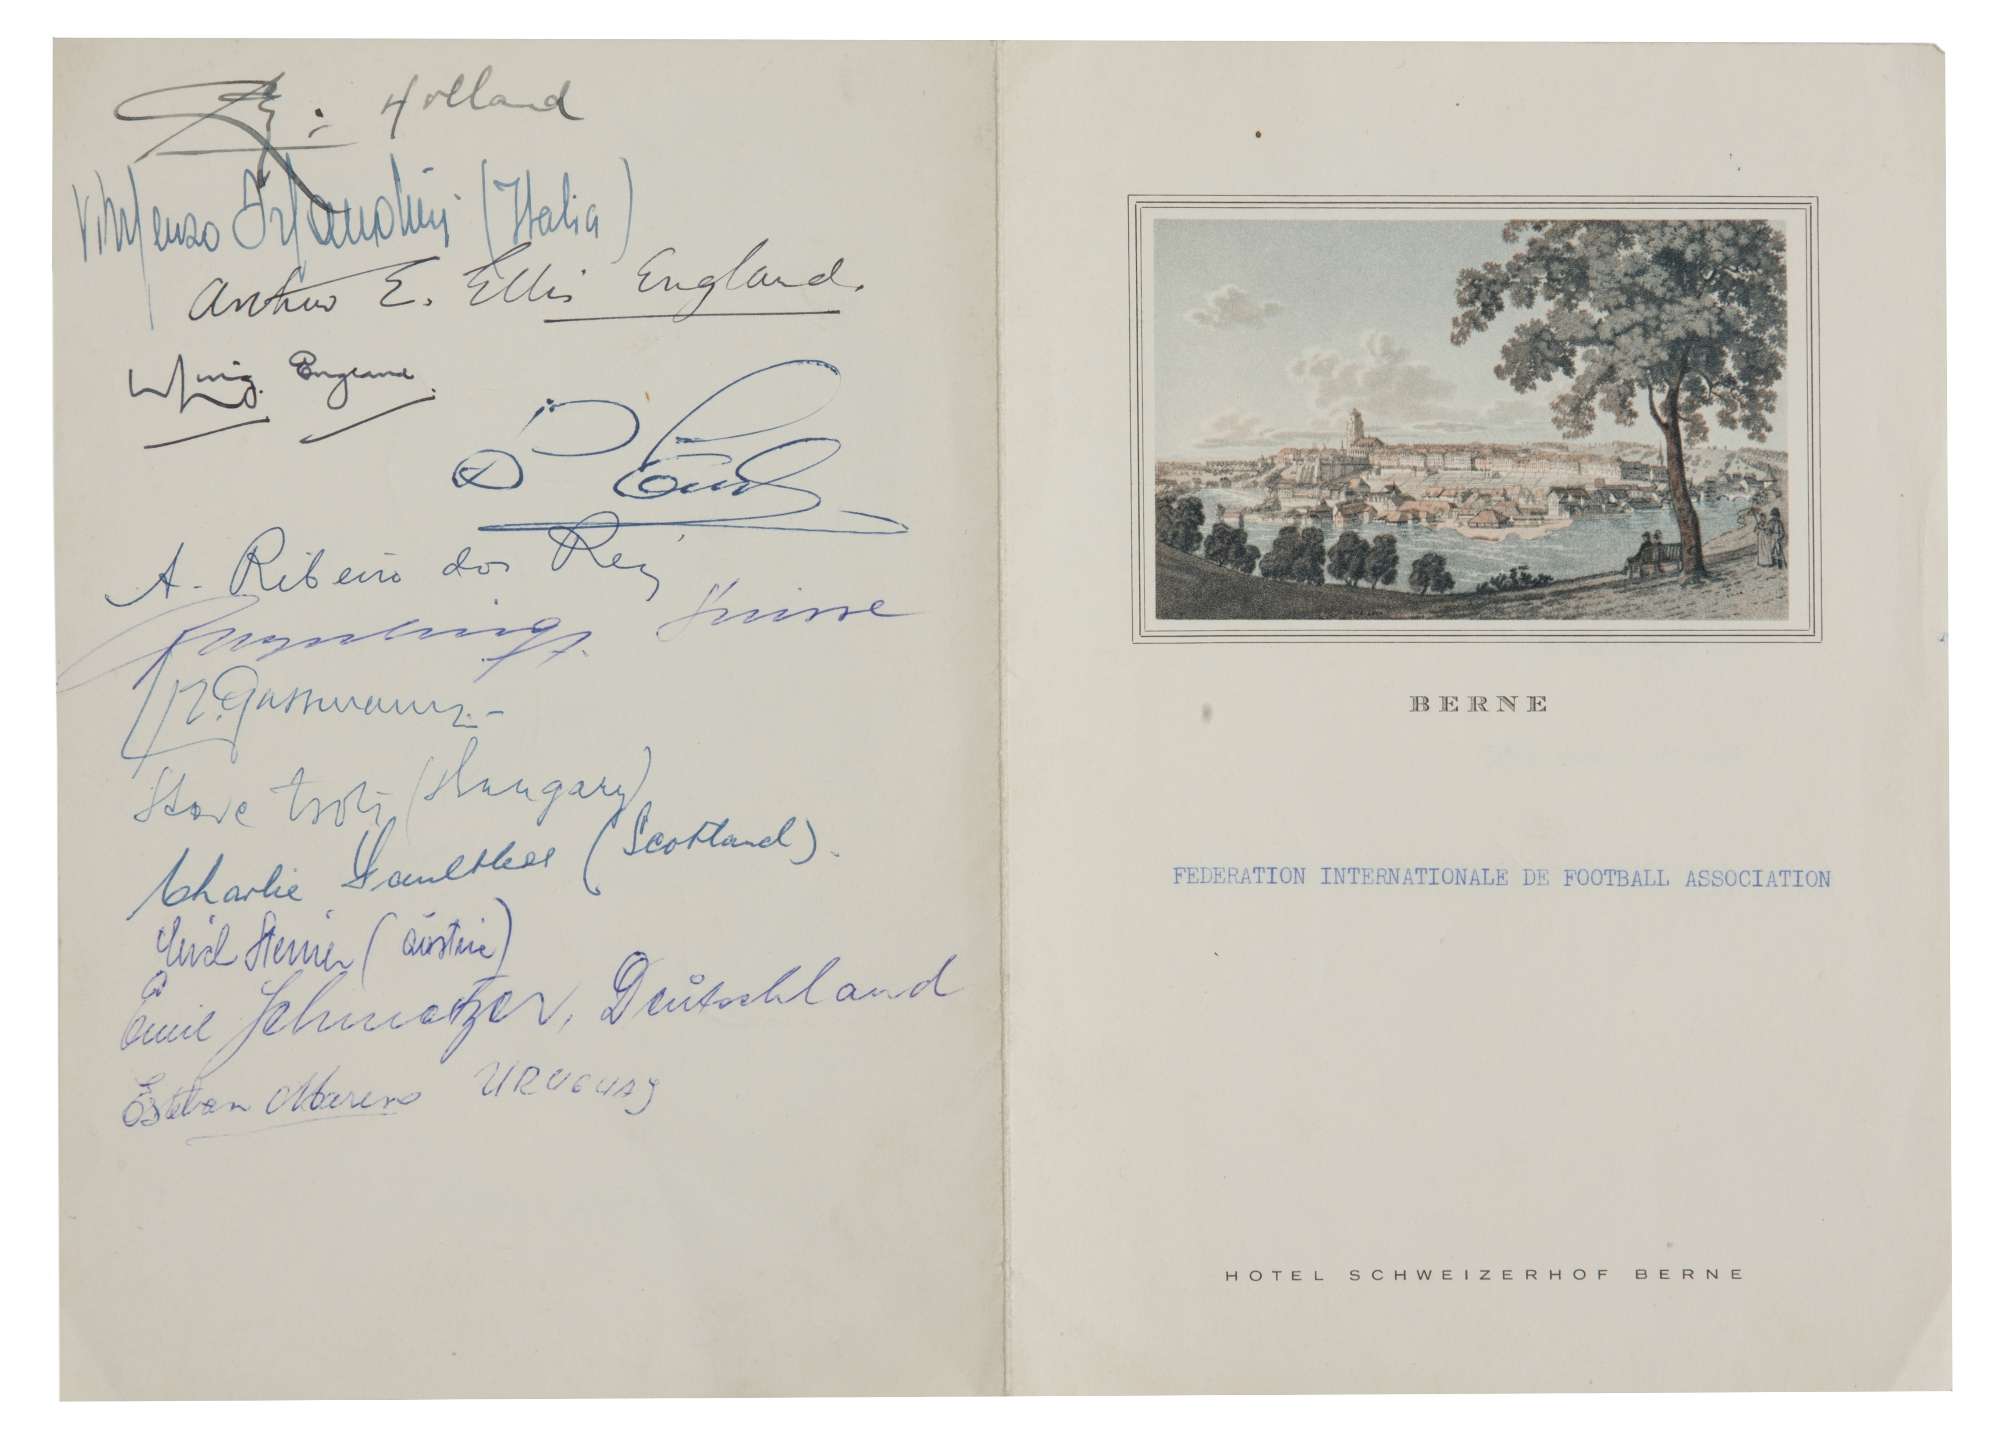 Holland
Vincenzo Orlandini (Italia)
Arthur E. Ellis England.
England
A. Ribeiro dos Reis
Suisse
Gassmann
Steve (Hungary)
Charlie Faultless (Scotland).
Steiner (Austria)
Emil Schmetzer, Deutschland
Esteban Marino URUGUAY
BERNE
FEDERATION INTERNATIONALE DE FOOTBALL ASSOCIATION
HOTEL SCHWEIZERHOF BERNE